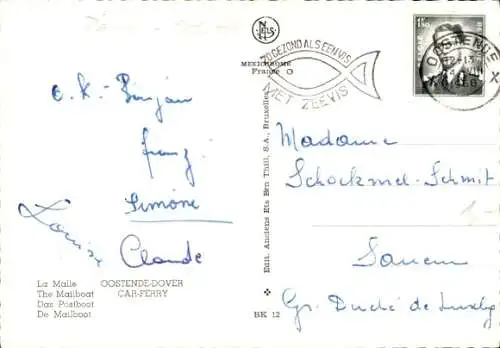 NELS
MEXICHROME
France
ZO GEZOND ALS EEN VIS
MET ZEEVIS
OOSTENDE
Simone
Louise
Claude
Madame
Schockmel-Schmit
Sanem
Gr. Duché de Luxbg
1-
La Malle OOSTENDE-DOVER
The Mailboat CAR-FERRY
Das Postboot
De Mailboot
Edit. Anciens Ets Ern Thill, S.A., Bruxelles
BK 12